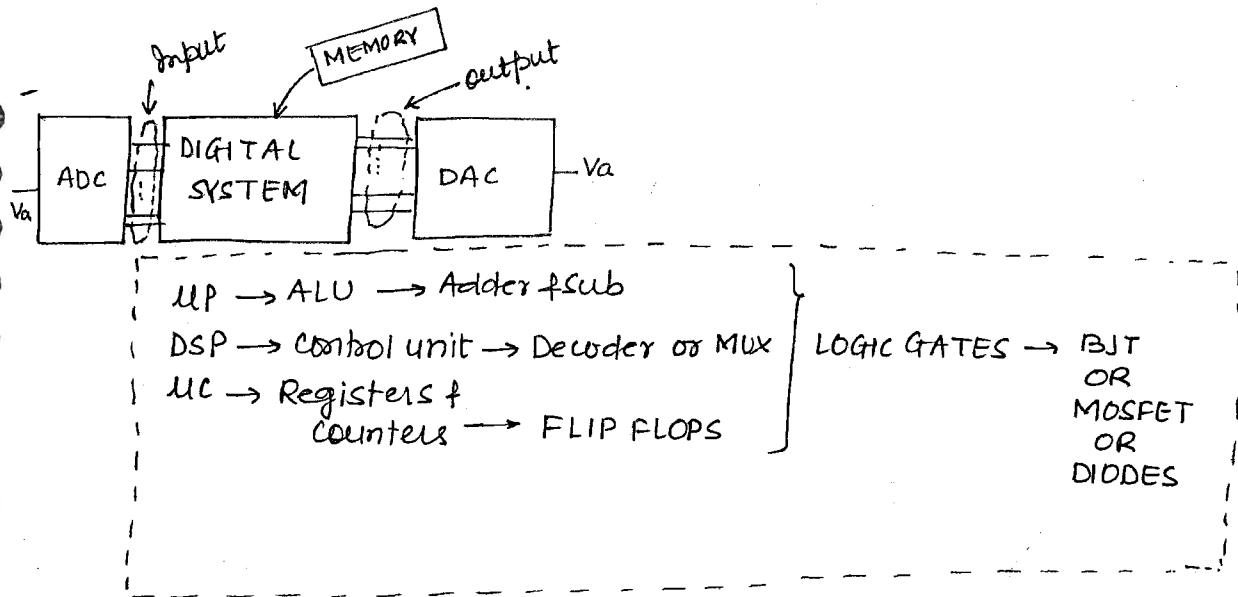 Input
MEMORY
output
ADC
DIGITAL
SYSTEM
DAC
Va
Va
μP → ALU → Adder & Sub
DSP → Control unit → Decoder or MUX
μC → Registers &
counters → FLIP FLOPS
LOGIC GATES → BJT
OR
MOSFET
OR
DIODES